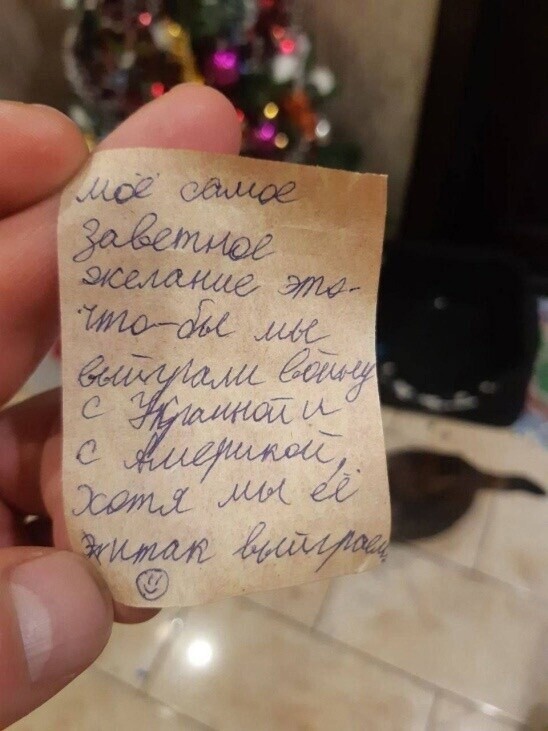 моё самое
заветное
желание это-
что-бы мы
выйграли войну
с Украиной и
с Америкой,
хотя мы её
итак выйграем.